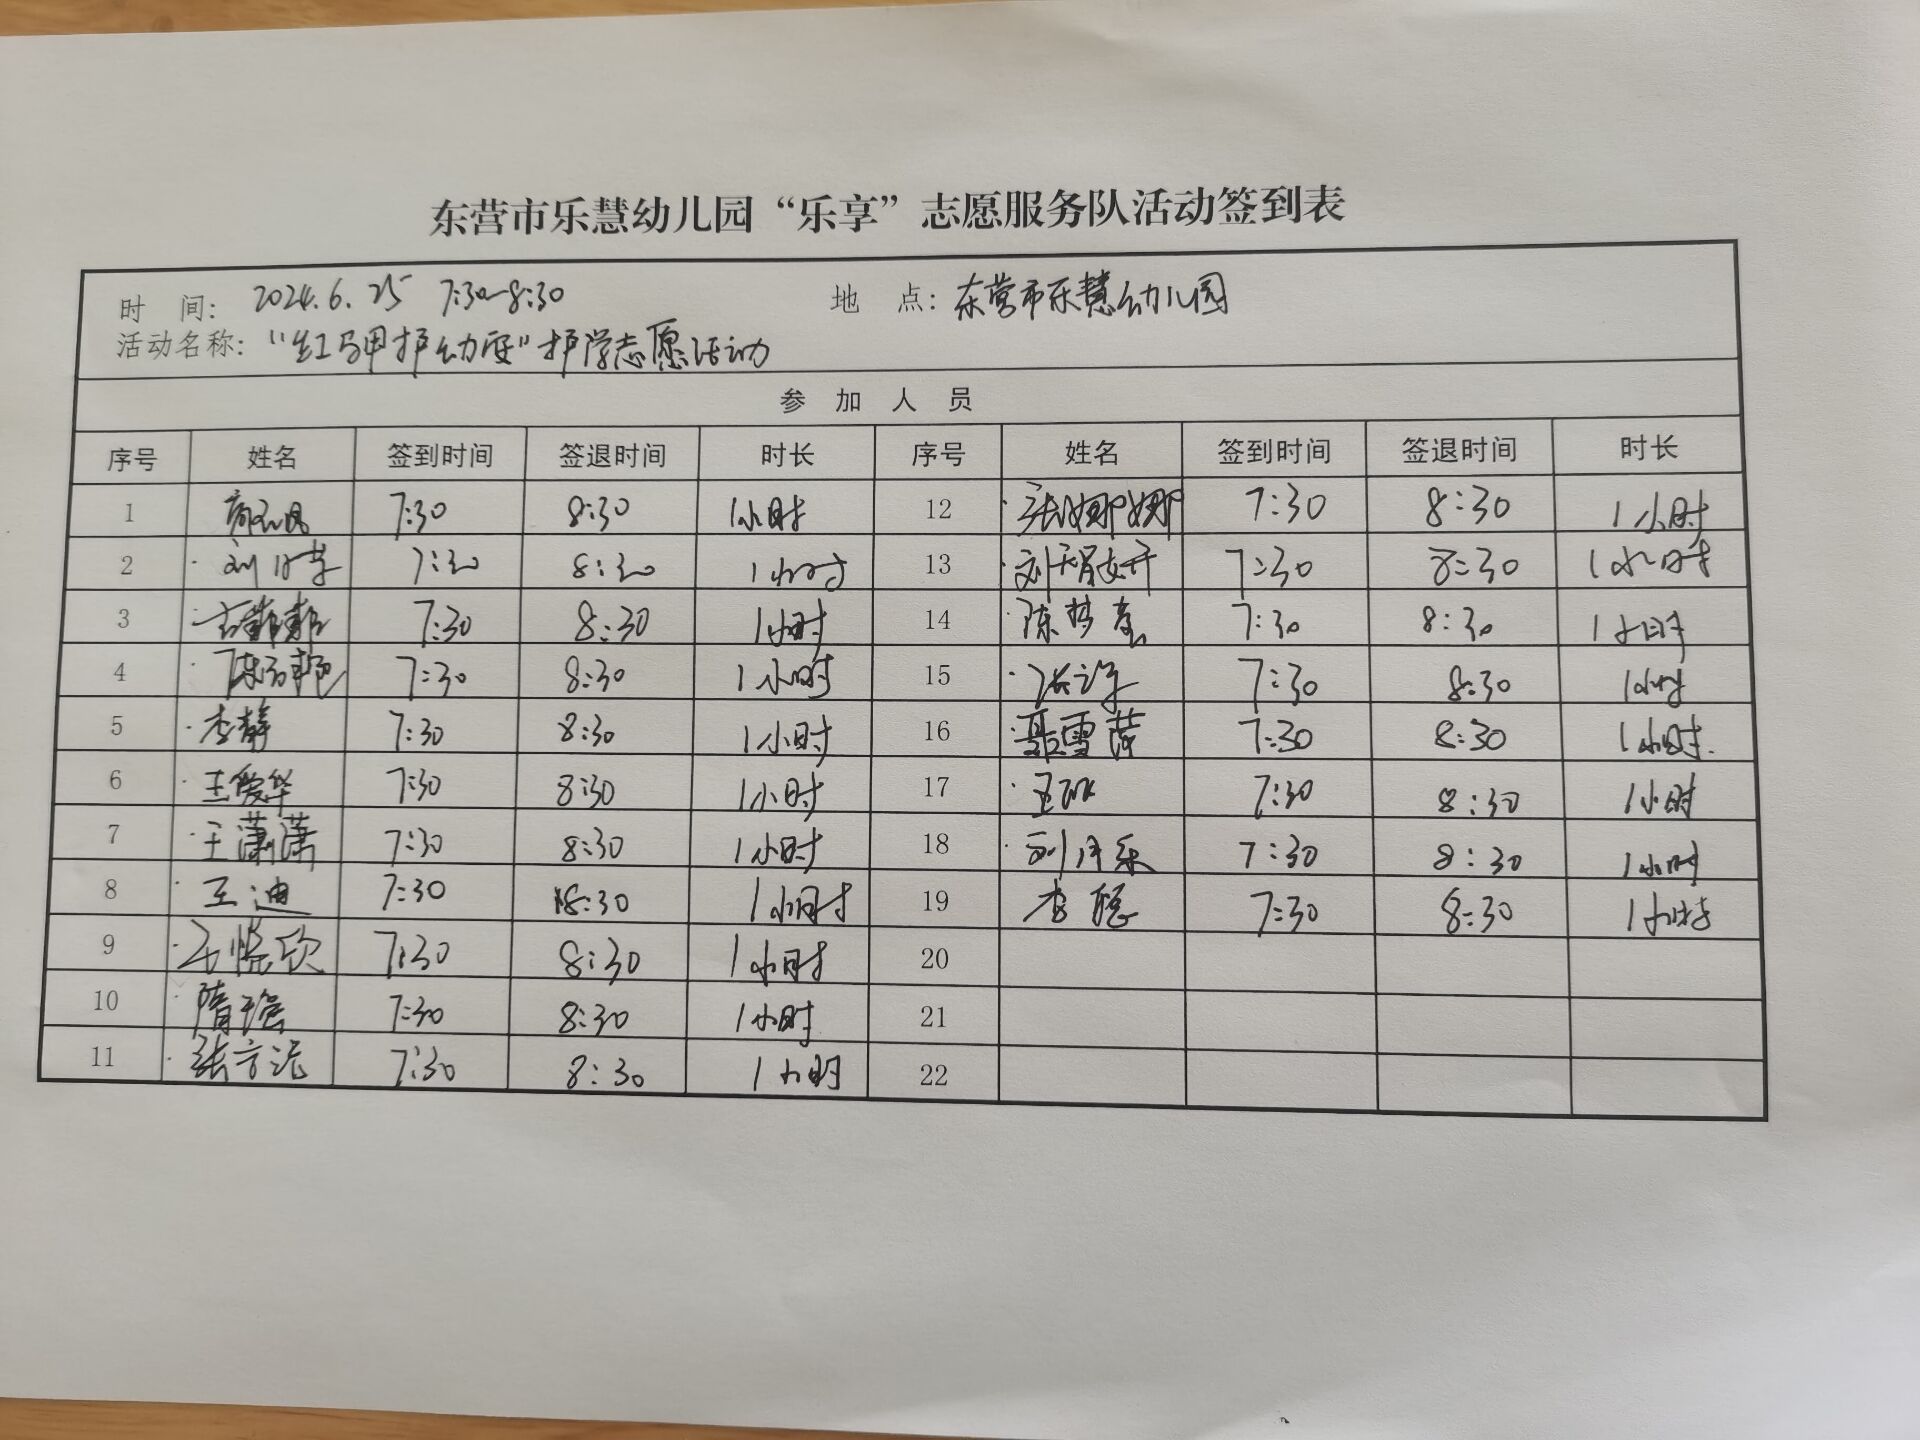 东营市乐慧幼儿园“乐享”志愿服务队活动签到表
时 间: 2024.6.25 7:30-8:30 地 点: 东营市乐慧幼儿园
活动名称: “红马甲护幼可”护学志愿活动
参 加 人 员
序号 姓名 签到时间 签退时间 时长 序号 姓名 签到时间 签退时间 时长
1 7:30 8:30 1小时 12 张娜娜 7:30 8:30 1小时
2 刘 7:30 8:30 1小时 13 刘娟妍 7:30 8:30 1小时
3 7:30 8:30 1小时 14 陈梦 7:30 8:30 1小时
4 陈 艳 7:30 8:30 1小时 15 张 7:30 8:30 1小时
5 李静 7:30 8:30 1小时 16 聂雪萍 7:30 8:30 1小时
6 王爱华 7:30 8:30 1小时 17 王 7:30 8:30 1小时
7 王潇潇 7:30 8:30 1小时 18 7:30 8:30 1小时
8 王迪 7:30 8:30 1小时 19 李聪 7:30 8:30 1小时
9 7:30 8:30 1小时 20
10 隋 7:30 8:30 1小时 21
11 张方 7:30 8:30 1小时 22